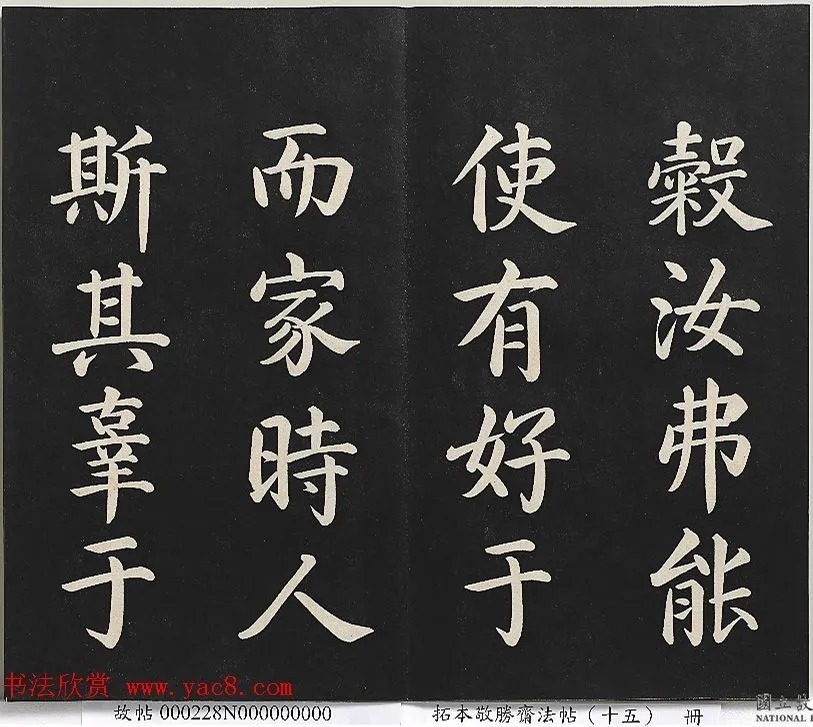 榖汝弗能
使有好于
而家時人
斯其辜于
书法欣赏 www.yac8.com
故帖 000228N000000000
拓本敬勝齋法帖（十五） 冊
國立故
NATIONAL